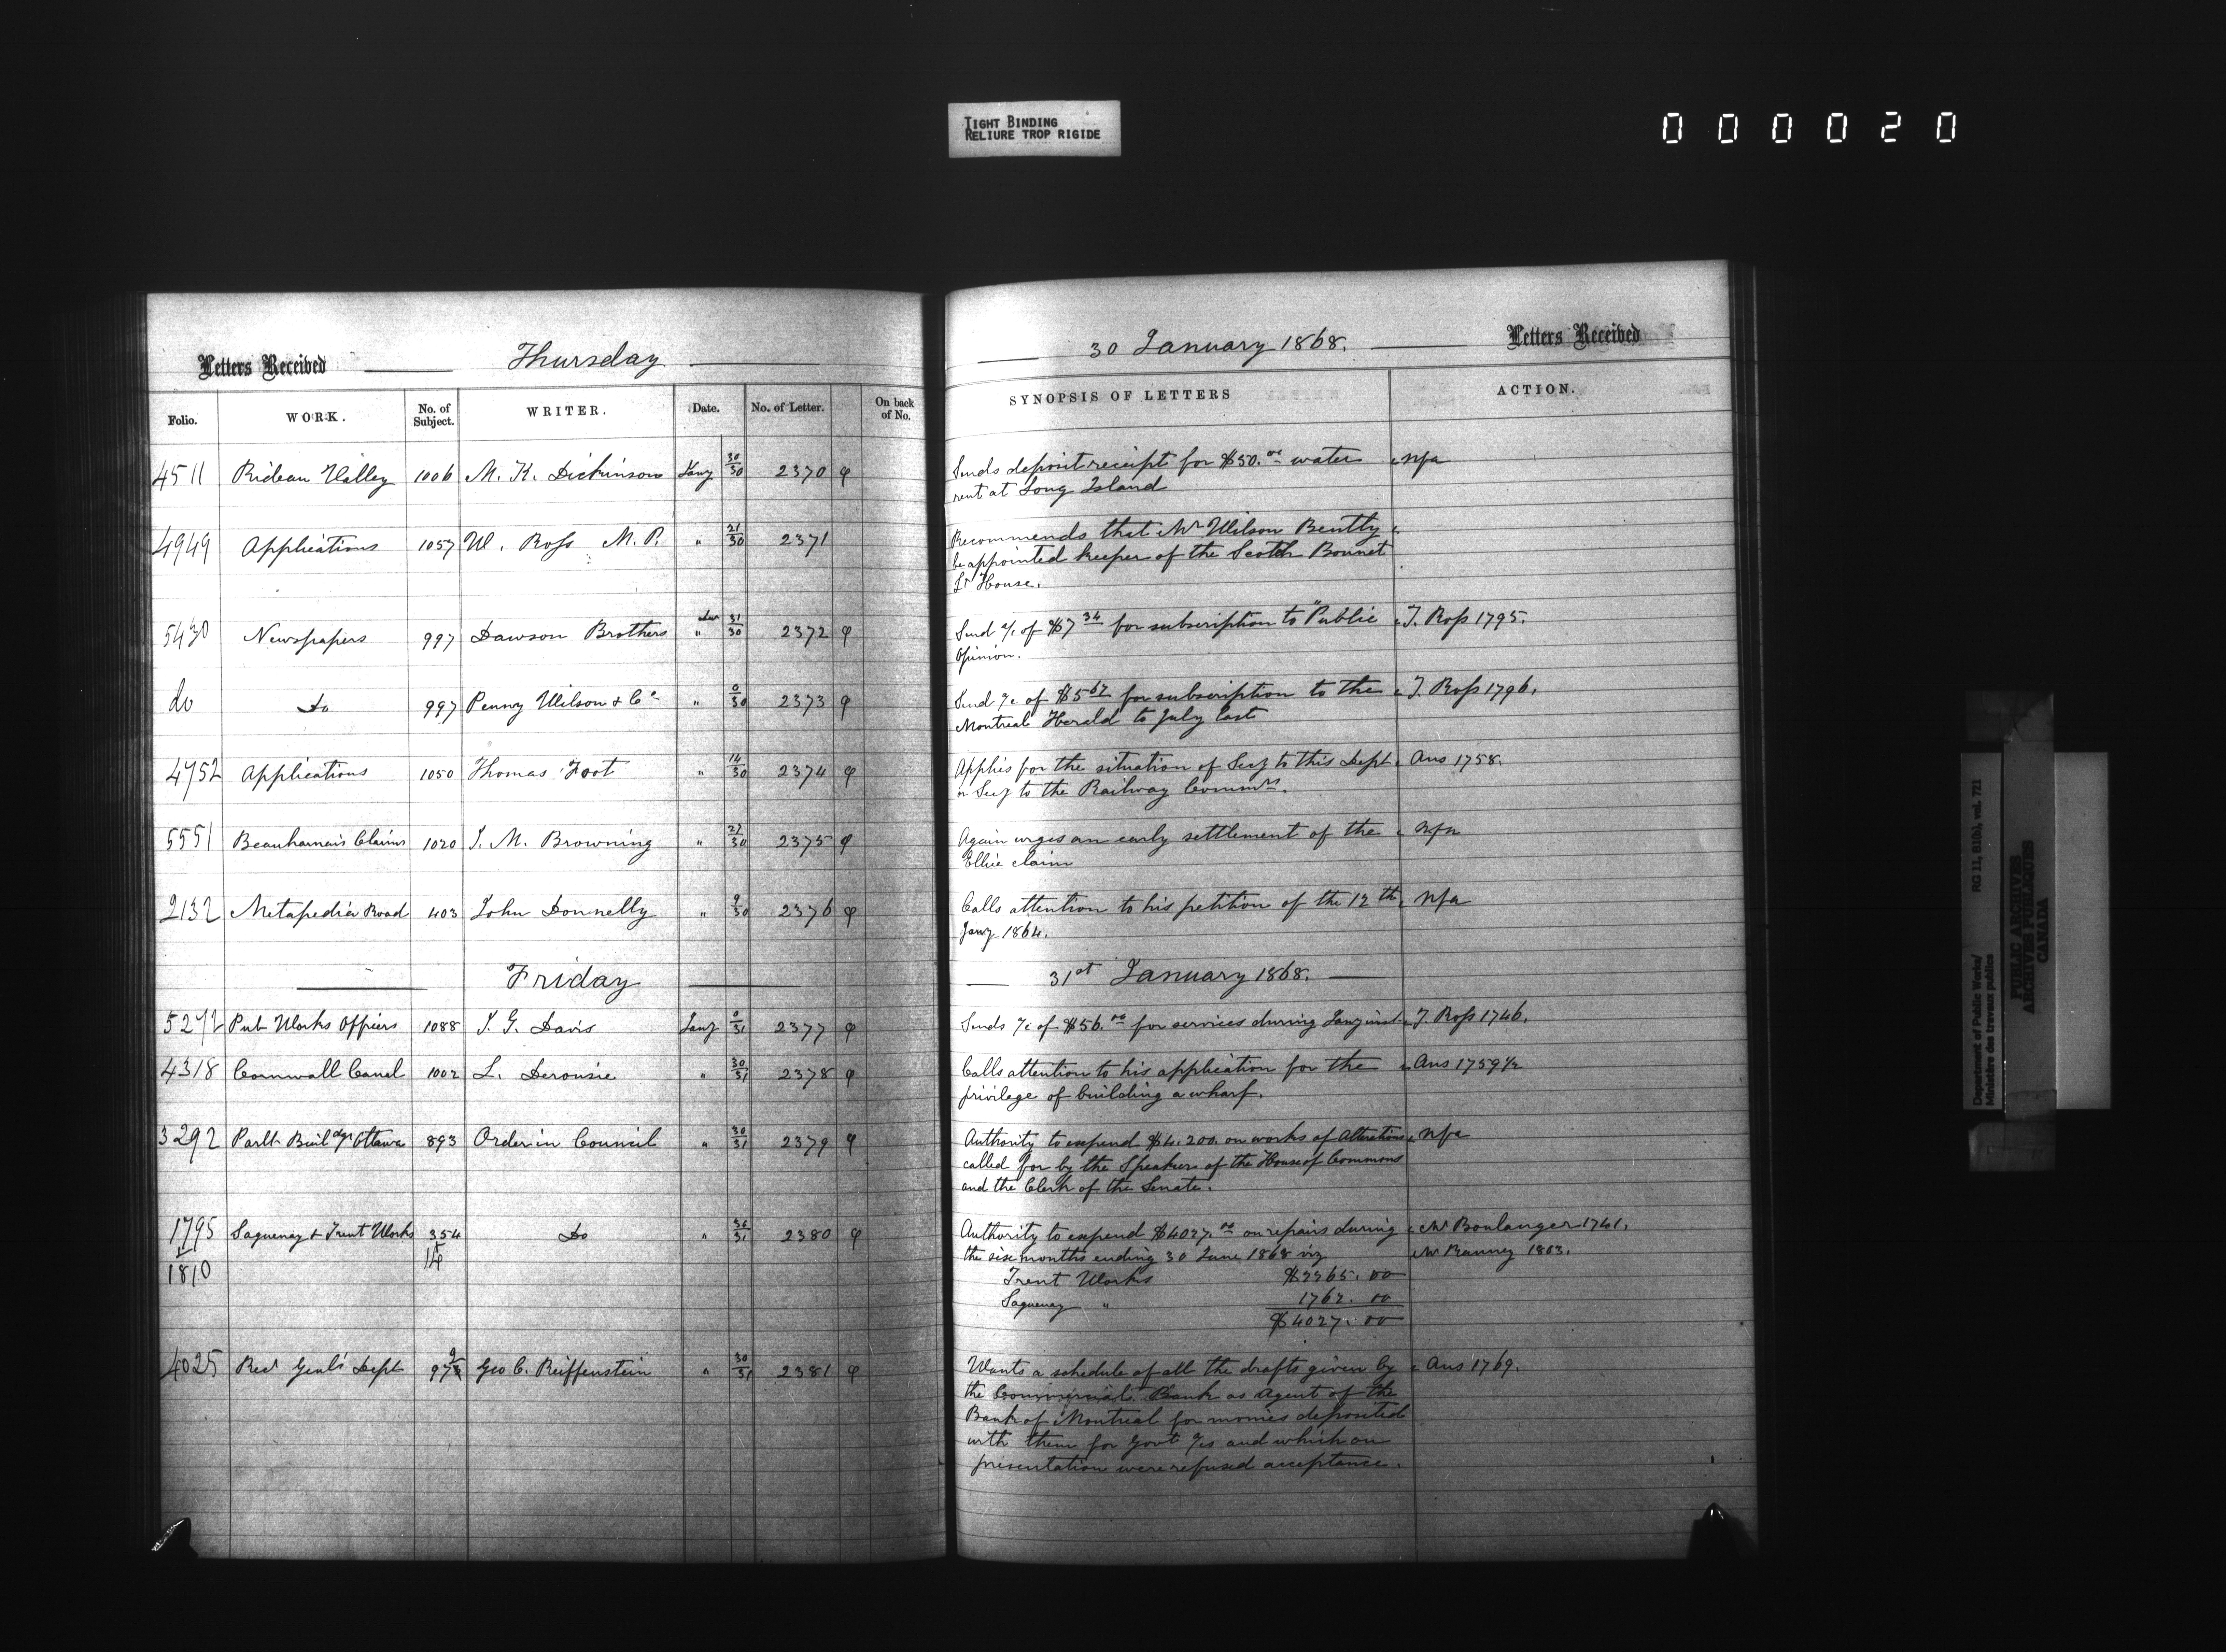 TIGHT BINDING
RELIURE TROP RIGIDE
000020
Letters Received Thursday 30 January 1868. Letters Received
Folio. WORK. No. of Subject. WRITER. Date. No. of Letter. On back of No. SYNOPSIS OF LETTERS ACTION.
4511 Rideau Valley 1006 M. K. Dickinson Jany 30/30 2370 φ Sends deposit receipt for $50.00 water nfa
rent at Long Island
4949 Applications 1057 W. Ross M. P. " 21/30 2371 Recommends that Mr Wilson Bentty
be appointed keeper of the Scotch Bonnet
Lt House.
5430 Newspapers 997 Dawson Brothers " 31/30 2372 φ Send a/c of $7 34 for subscription to "Public T. Ross 1795.
Opinion.
do Do 997 Penny Wilson & Co " 0/30 2373 φ Send a/c of $5 67 for subscription to the T. Ross 1796.
Montreal Herald to July last
4752 Applications 1050 Thomas Foot " 14/30 2374 φ Applies for the situation of Secy to this Dept Ans 1758.
or Secy to the Railway Commrs.
5551 Beauharnais Claims 1020 J. M. Browning " 27/30 2375 φ Again urges an early settlement of the nfa
Ellice claim
2132 Metapedia Road 403 John Donnelly " 9/30 2376 φ Calls attention to his petition of the 12th nfa
Jany 1864.
Friday 31st January 1868.
5272 Pub Works Officers 1088 J. G. Davis Jany 0/31 2377 φ Sends a/c of $56.00 for services during Jany inst T. Ross 1746.
4318 Cornwall Canal 1002 L. Derousie " 30/31 2378 φ Calls attention to his application for the Ans 1759½
privilege of building a wharf.
3292 Parlt Buildgs Ottawa 893 Order in Council " 30/31 2379 φ Authority to expend $4.200. on works of Alterations nfa
called for by the Speaker of the House of Commons
and the Clerk of the Senate.
1795 Saguenay & Trent Works 354 Do " 30/31 2380 φ Authority to expend $4027.00 on repairs during Mr Boulanger 1741.
1810 14 the six months ending 30 June 1868 viz Mr Ranney 1803.
Trent Works $2265.00
Saguenay " 1762.00
$4027.00
4025 Recr Genl's Dept 972 Geo C. Reiffenstein " 30/31 2381 φ Wants a schedule of all the drafts given by Ans 1769.
the Commercial Bank as Agent of the
Bank of Montreal for monies deposited
with them for Govt a/cs and which on
presentation were refused acceptance.
Department of Public Works/ RG 11, B1(b), vol. 721
Ministère des travaux publics
PUBLIC ARCHIVES
ARCHIVES PUBLIQUES
CANADA